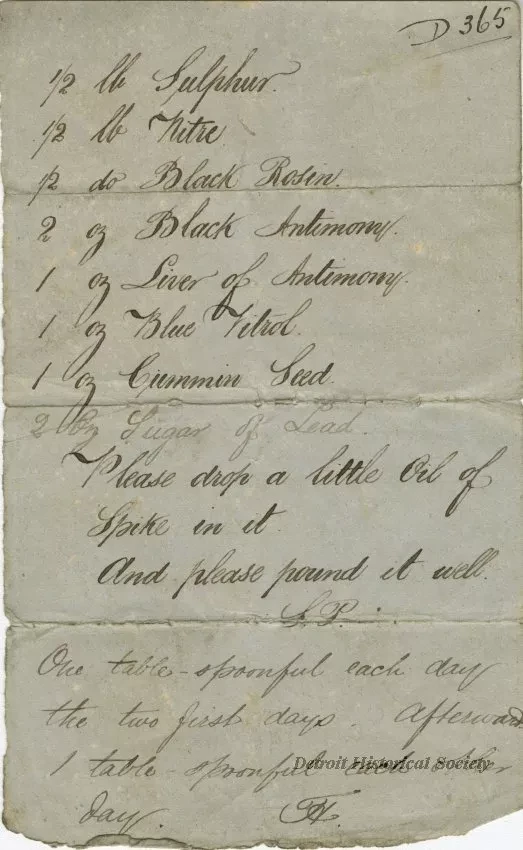 D 365
1/2 lb Sulphur.
1/2 lb Nitre
1/2 do Black Rosin.
2 oz Black Antimony.
1 oz Liver of Antimony.
1 oz Blue Vitrol.
1 oz Cummin Seed.
2 oz Sugar of Lead.
Please drop a little Oil of
Spike in it.
And please pound it well.
S.P.
One table-spoonful each day
the two first days. Afterward
Detroit Historical Society
1 table-spoonful each other
day.